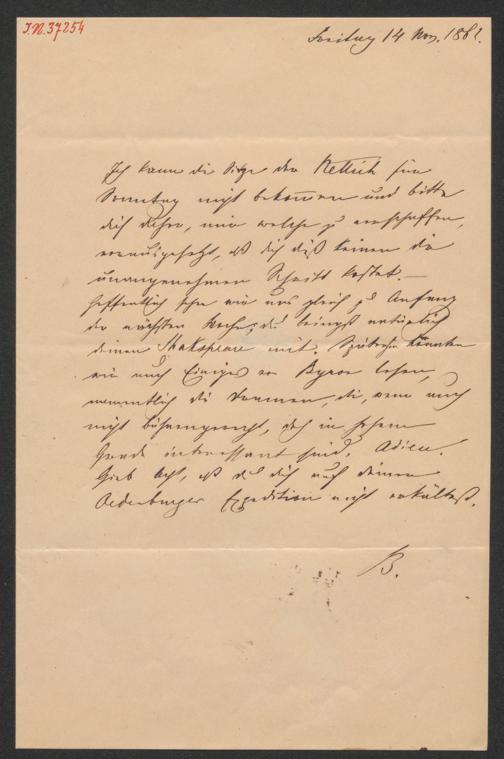 I.N. 37254
Freitag 14 Nov. 186
Ich kann die Sitze der Rettich für
Sonntag nicht bekommen und bitte
dich daher, mir welche zu verschaffen,
vorausgesetzt, daß dich dieß keinen dir
unangenehmen Schritt kostet. —
Hoffentlich sehn wir uns gleich zu Anfang
der nächsten Woche; du bringst natürlich
deinen Shakspeare mit. Späterhin könnten
wir auch Einiges von Byron lesen,
namentlich die Dramen, die, wenn auch
nicht bühnengerecht, doch in hohem
Grade interessant sind. Adieu.
Gieb Acht, daß du dich auf deiner
Oedenburger Expedition nicht erkältest.
B.